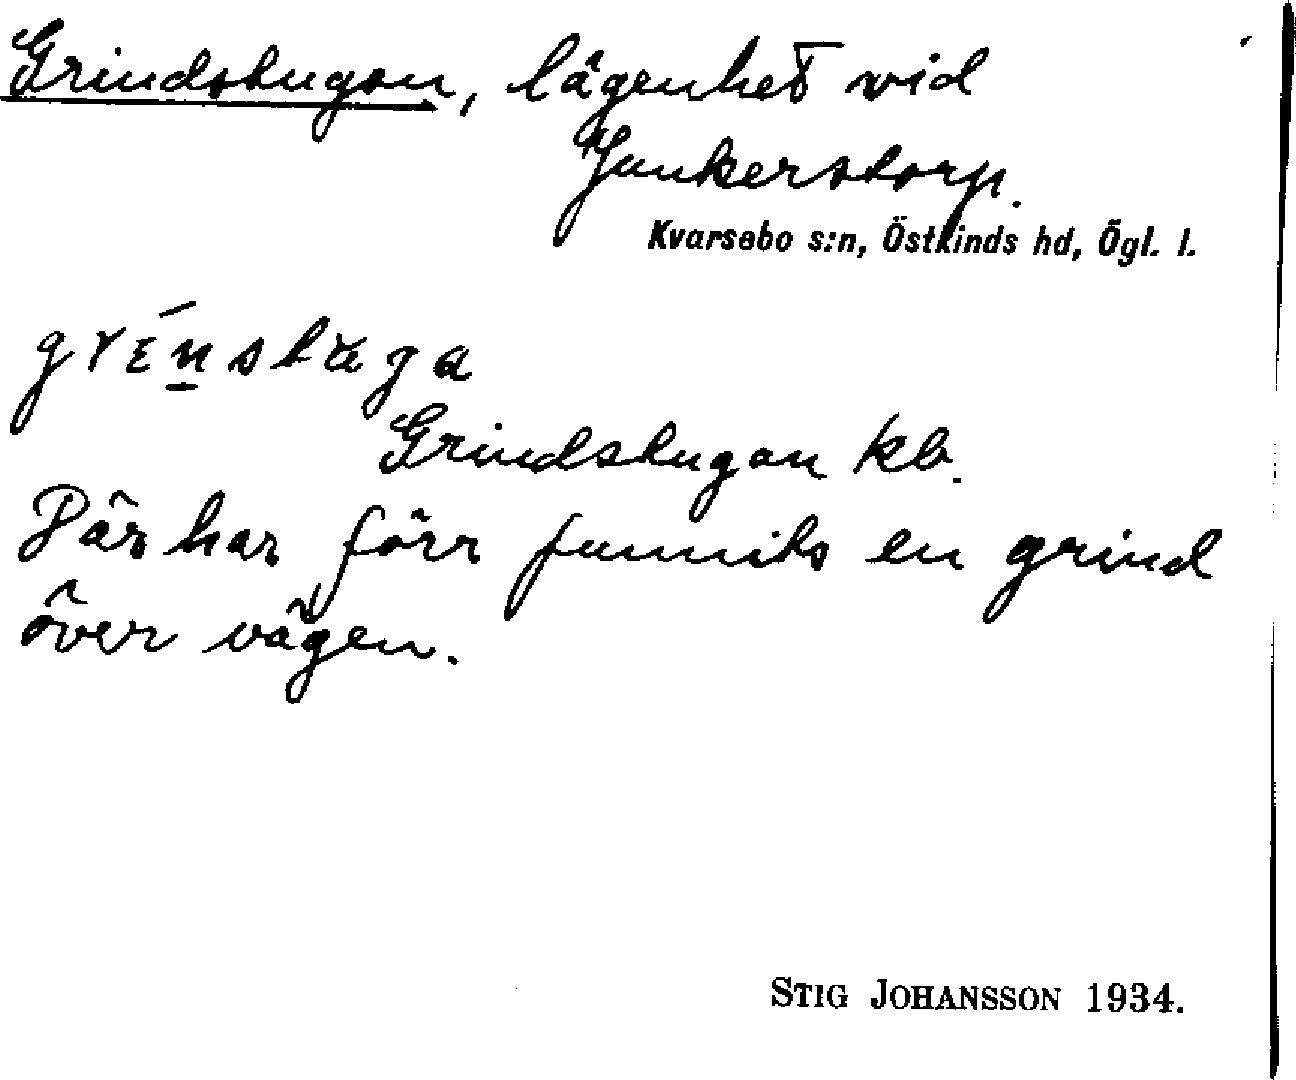 Grindstugan, lägenhet vid
Junkerstorp.
Kvarsebo s:n, Östkinds hd, Ögl. l.
Grindstugan kb.
Där har förr funnits en grind
över vägen.
STIG JOHANSSON 1934.